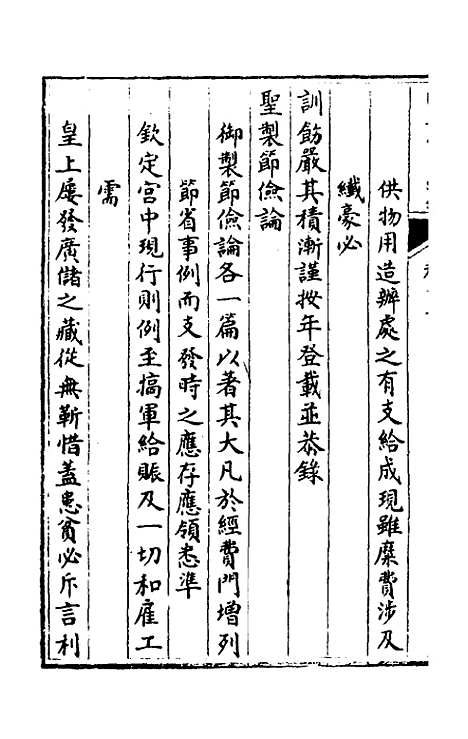 供物用造辦處之有支給成現雖糜費涉及
纖豪必
訓飭嚴其積漸謹按年登載並恭錄
聖製節儉論
御製節儉論各一篇以著其大凡於經費門增列
節省事例而支發時之應存應領悉準
欽定宮中現行則例至搞軍給賑及一切和雇工
需
皇上屡發廣儲之藏從無靳惜蓋患貧必斥言利